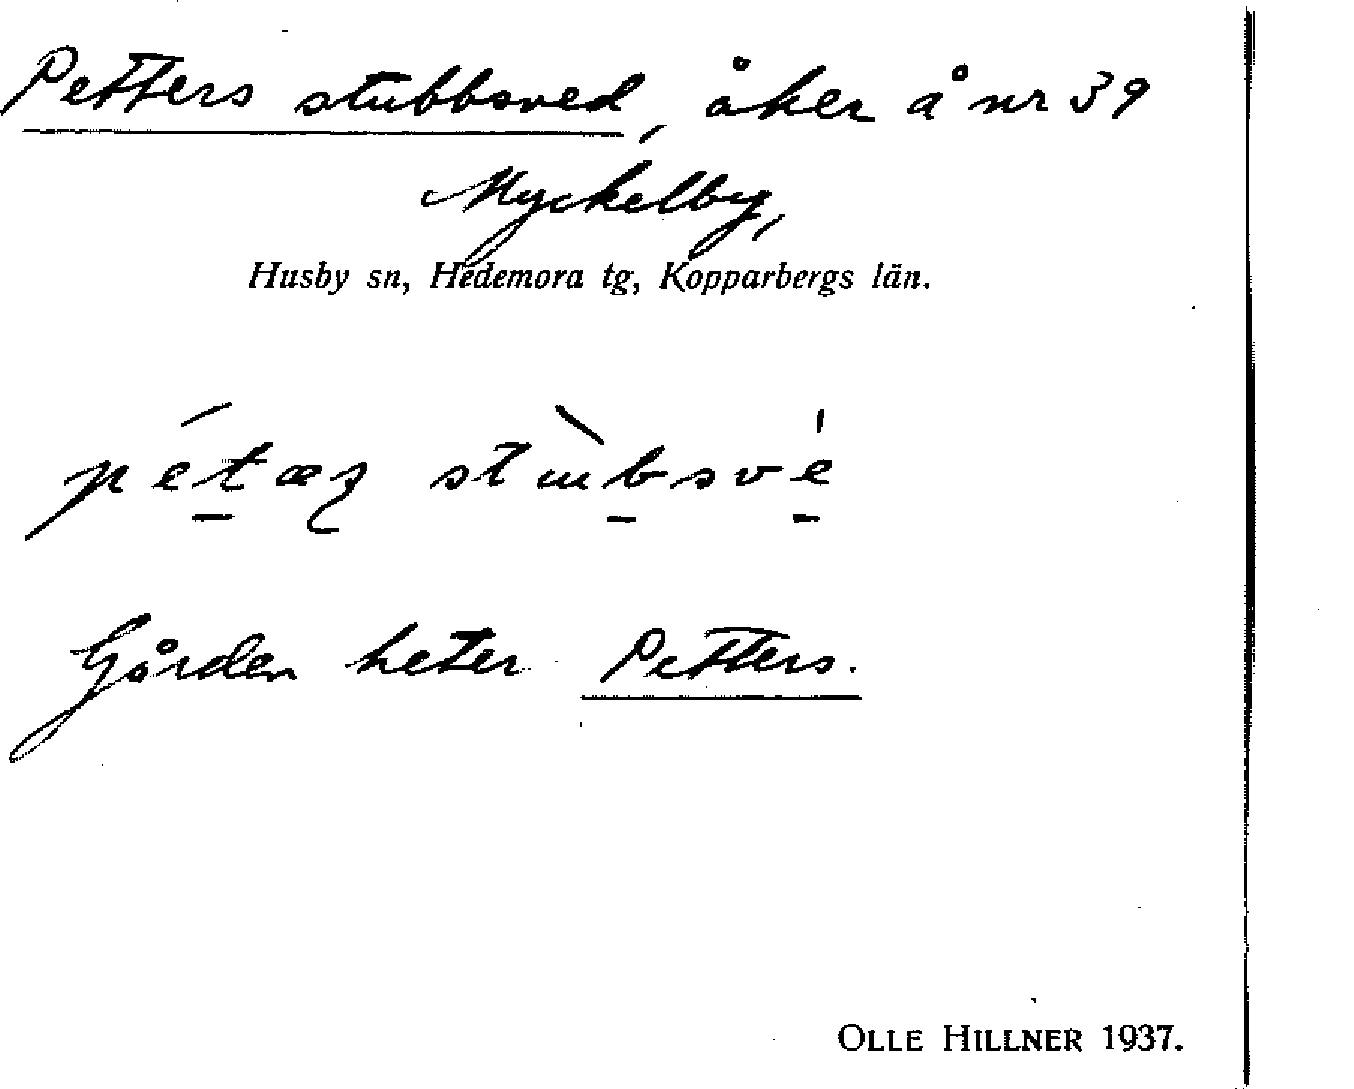 Petters stubbsved, åker å nr 39
Myckelby,
Husby sn, Hedemora tg, Kopparbergs län.
pétæʂ stɯ̀bsvé
Gården heter Petters.
OLLE HILLNER 1937.